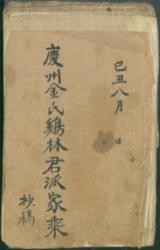 己丑八月 日
慶州金氏鷄林君派家乘
抄稿